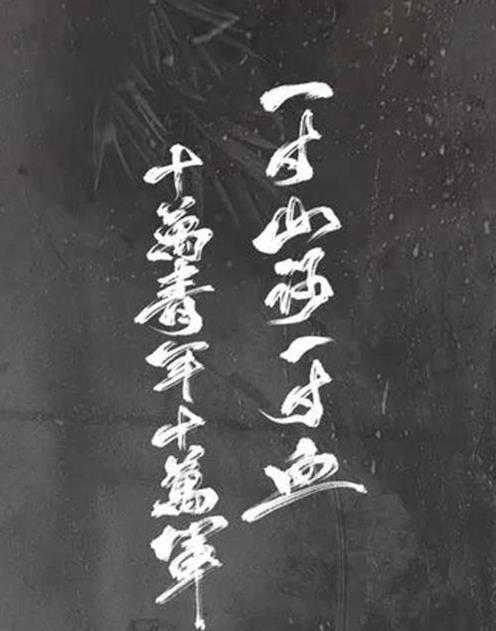 一寸山河一寸血
十萬青年十萬軍